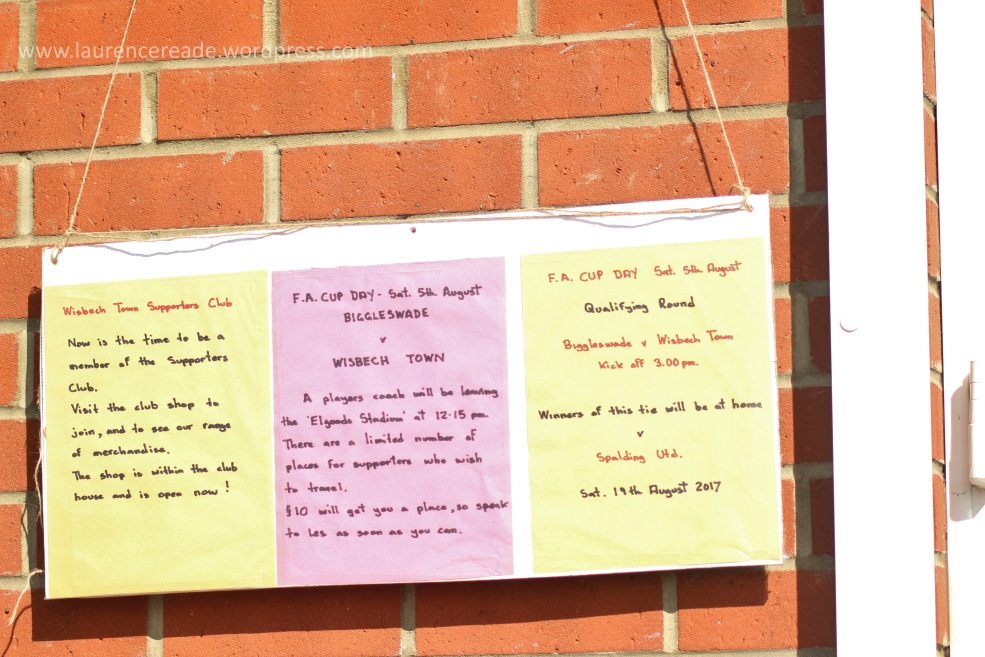 www.laurencereade.wordpress.com
Wisbech Town Supporters Club
Now is the time to be a
member of the Supporters
Club.
Visit the club shop to
join, and to see our range
of merchandise.
The shop is within the club
house and is open now!
F.A. CUP DAY - Sat. 5th August
BIGGLESWADE
v
WISBECH TOWN
A players coach will be leaving
the 'Elgoods Stadium' at 12-15 pm.
There are a limited number of
places for supporters who wish
to travel.
§10 will get you a place, so speak
to Les as soon as you can.
F.A. CUP DAY Sat. 5th August
Qualifying Round
Biggleswade v Wisbech Town
Kick off 3.00pm.
Winners of this tie will be at home
v
Spalding Utd.
Sat. 19th August 2017